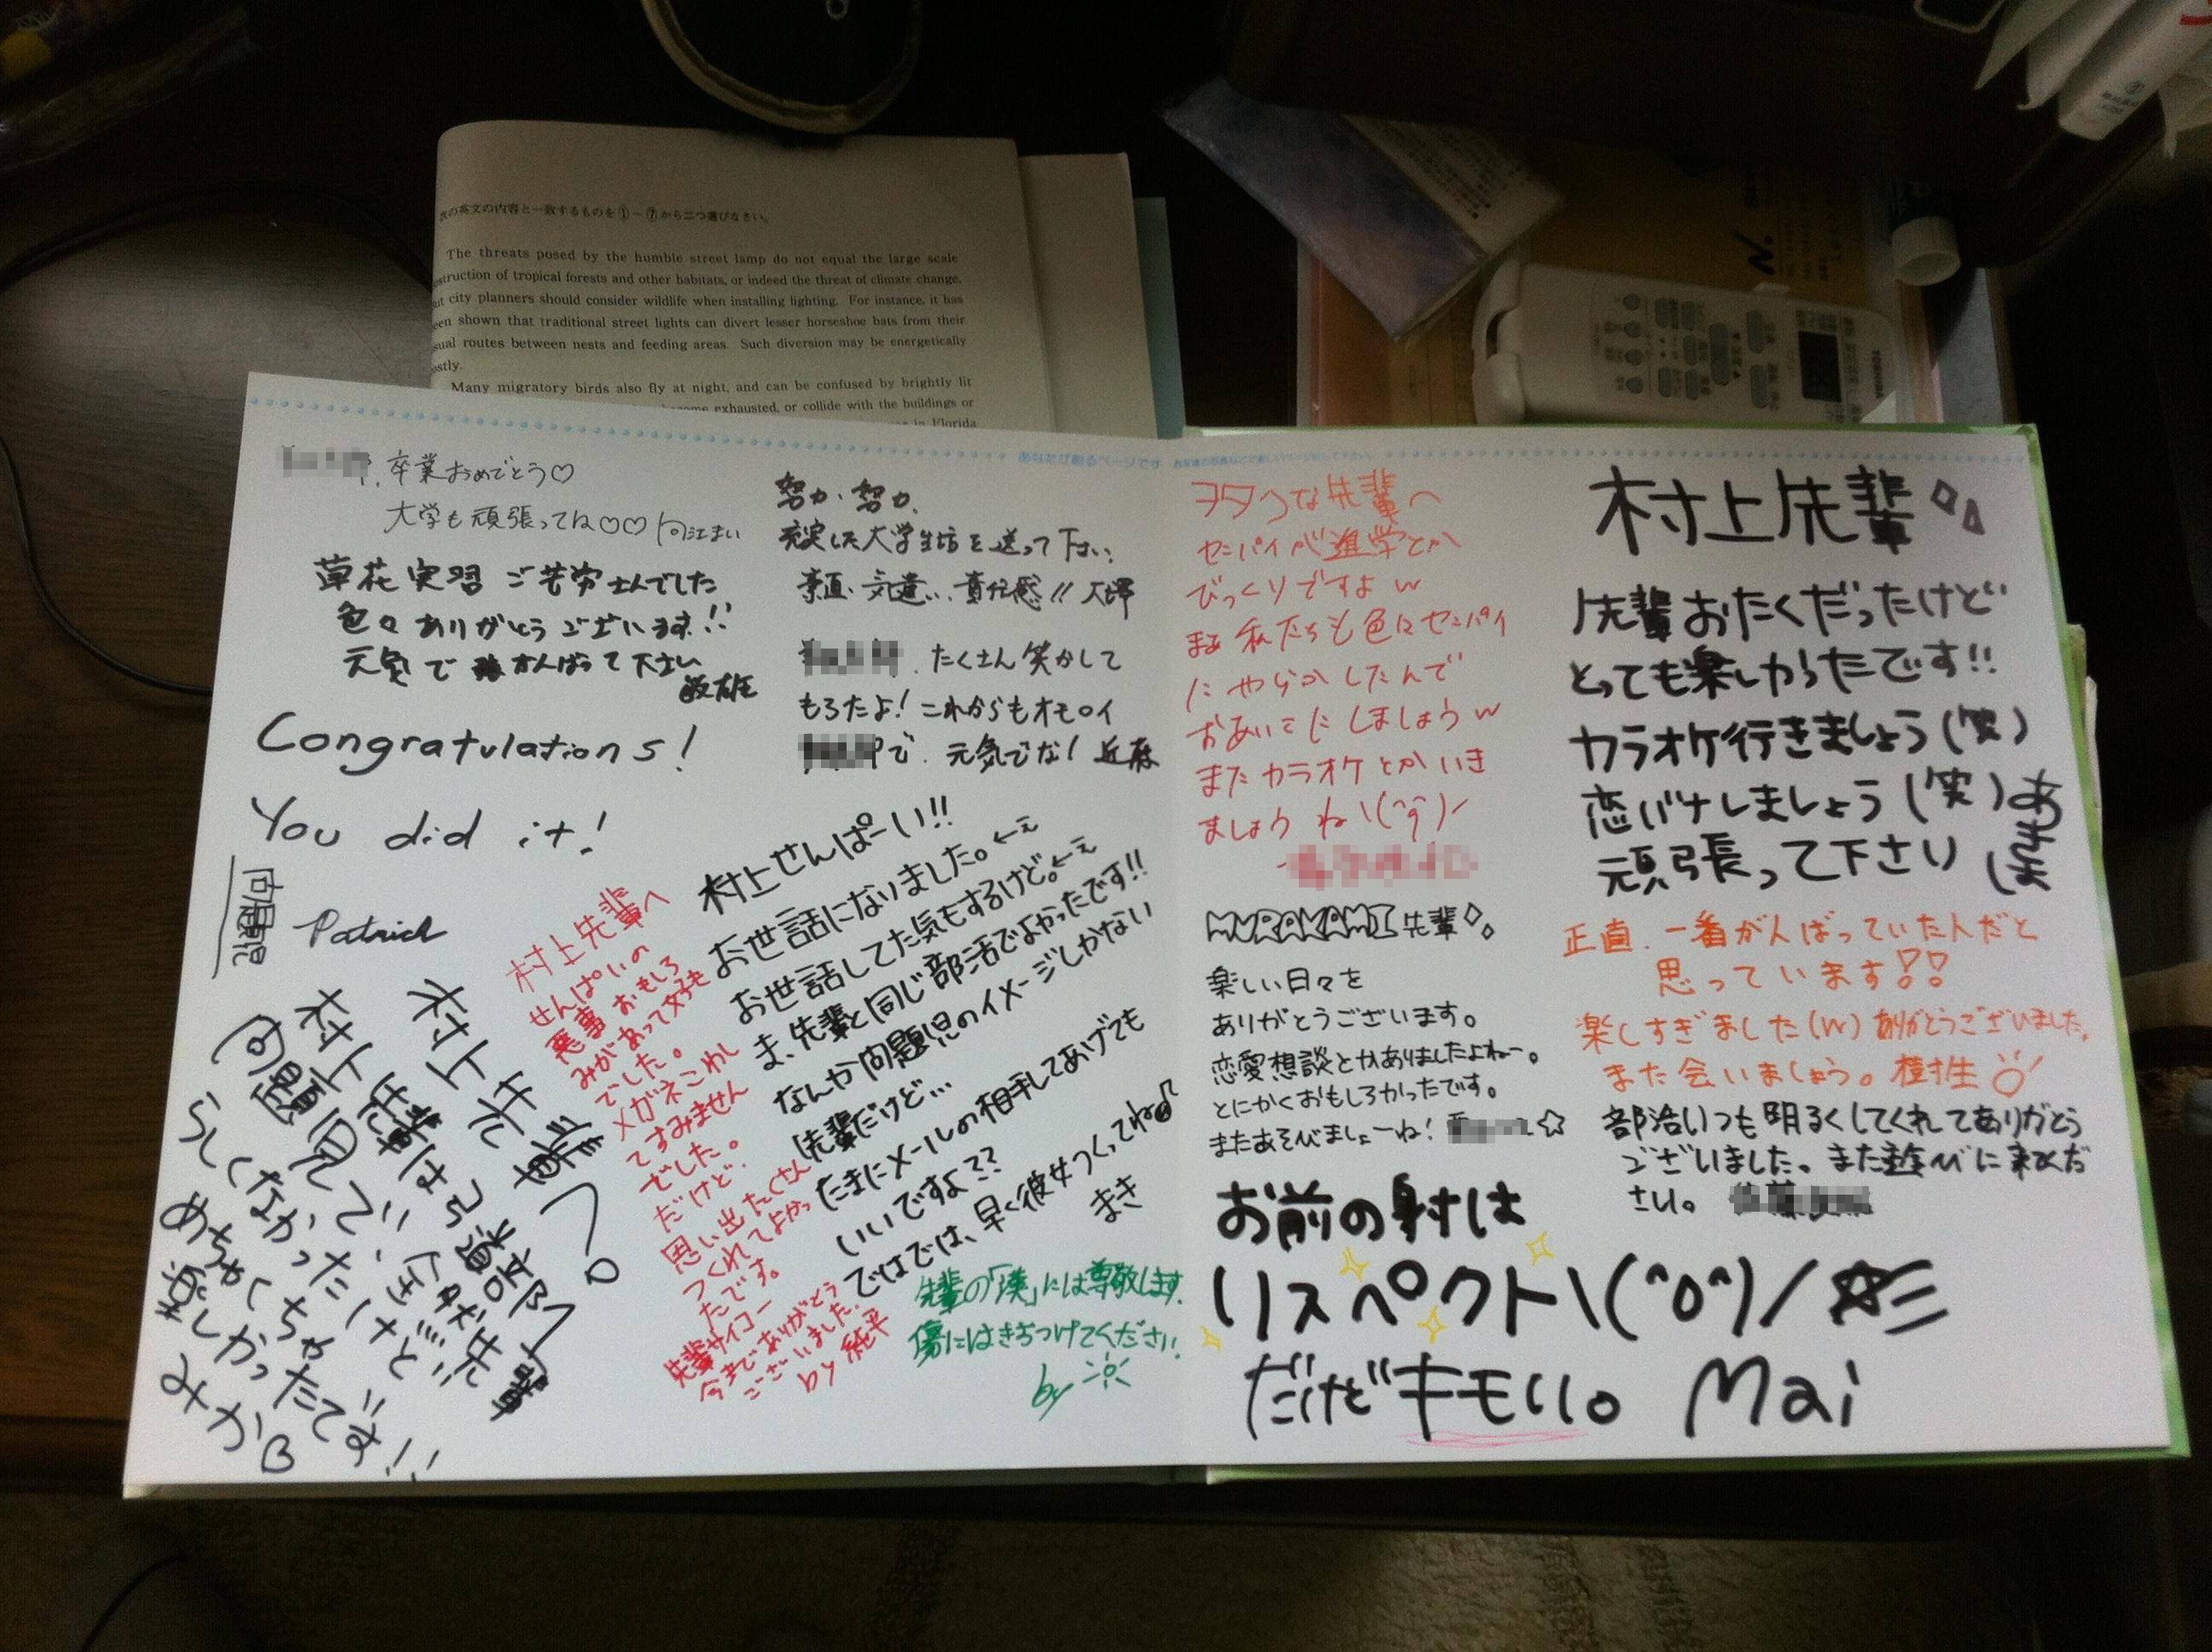 次の英文の内容と一致するものを①～⑦から二つ選びなさい。
The threats posed by the humble street lamp do not equal the large scale
struction of tropical forests and other habitats, or indeed the threat of climate change,
ut city planners should consider wildlife when installing lighting. For instance, it has
een shown that traditional street lights can divert lesser horseshoe bats from their
sual routes between nests and feeding areas. Such diversion may be energetically
ostly.
Many migratory birds also fly at night, and can be confused by brightly lit
become exhausted, or collide with the buildings or
in Florida
TOSHIBA
卒業おめでとう♡
大学も頑張ってね♡♡ 向江まい
草花実習 ご苦労さんでした
色々ありがとうございます!!
元気で がんばって下さい
Congratulations!
You did it!
Patrick
問題児
努力・努力、
充実した大学生活を送って下さい
素直、気遣い、責任感!!
たくさん笑かして
もろたよ! これからもオモロイ
で、元気でな!
村上先輩へ
せんぱいの
悪事おもしろ
みがあって好き
でした。
メガネこわし
てすみません
でした。
だけど、
思い出たくさん
つくれてよかっ
たです。
先輩サイコー
今までありがとう
ございました。
by 純平
村上せんぱーい!!
お世話になりました。←え
お世話してた気もするけど。←え
ま、先輩と同じ部活でよかったです!!
なんか問題児のイメージしかない
先輩だけど…
たまにメールの相手してあげても
いいですよ??
ではでは、早く彼女つくってね♪
まき
村上先輩へ。
村上先輩は弓道部1
問題児で、全然先輩
らしくなかったけど!!
めちゃくちゃ
楽しかったです!!
みか
先輩の「漢」には尊敬します。
傷にはきをつけてください。
by
あなたが創るページです
ヲタクな先輩へ
センパイが進学とか
びっくりですよw
まぁ私たちも色々センパイ
にやらかしたんで
おあいこにしましょうw
またカラオケとかいき
ましょうね
MURAKAMI先輩
楽しい日々を
ありがとうございます。
恋愛想談とかありましたよねー。
とにかくおもしろかったです。
またあそびましょーね! ☆
お前の射は
リスペクト\(^o^)/☆
だけどキモい。 Mai
村上先輩
先輩おたくだったけど
とっても楽しかったです!!
カラオケ行きましょう(笑)
恋バナしましょう(笑)
頑張って下さい
あきほ
正直、一番がんばっていた人だと
思っています!!
楽しすぎました(w) ありがとうございました。
また会いましょう。 樹生
部活いつも明るくしてくれてありがとう
ございました。また遊びに来てくだ
さい。